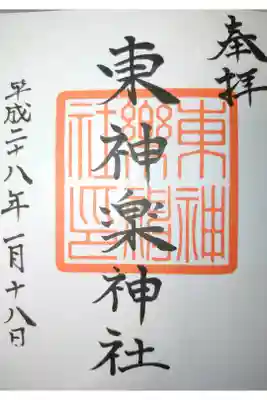 奉拝
東神楽神社
平成二十八年一月十八日
東神
樂神
社印